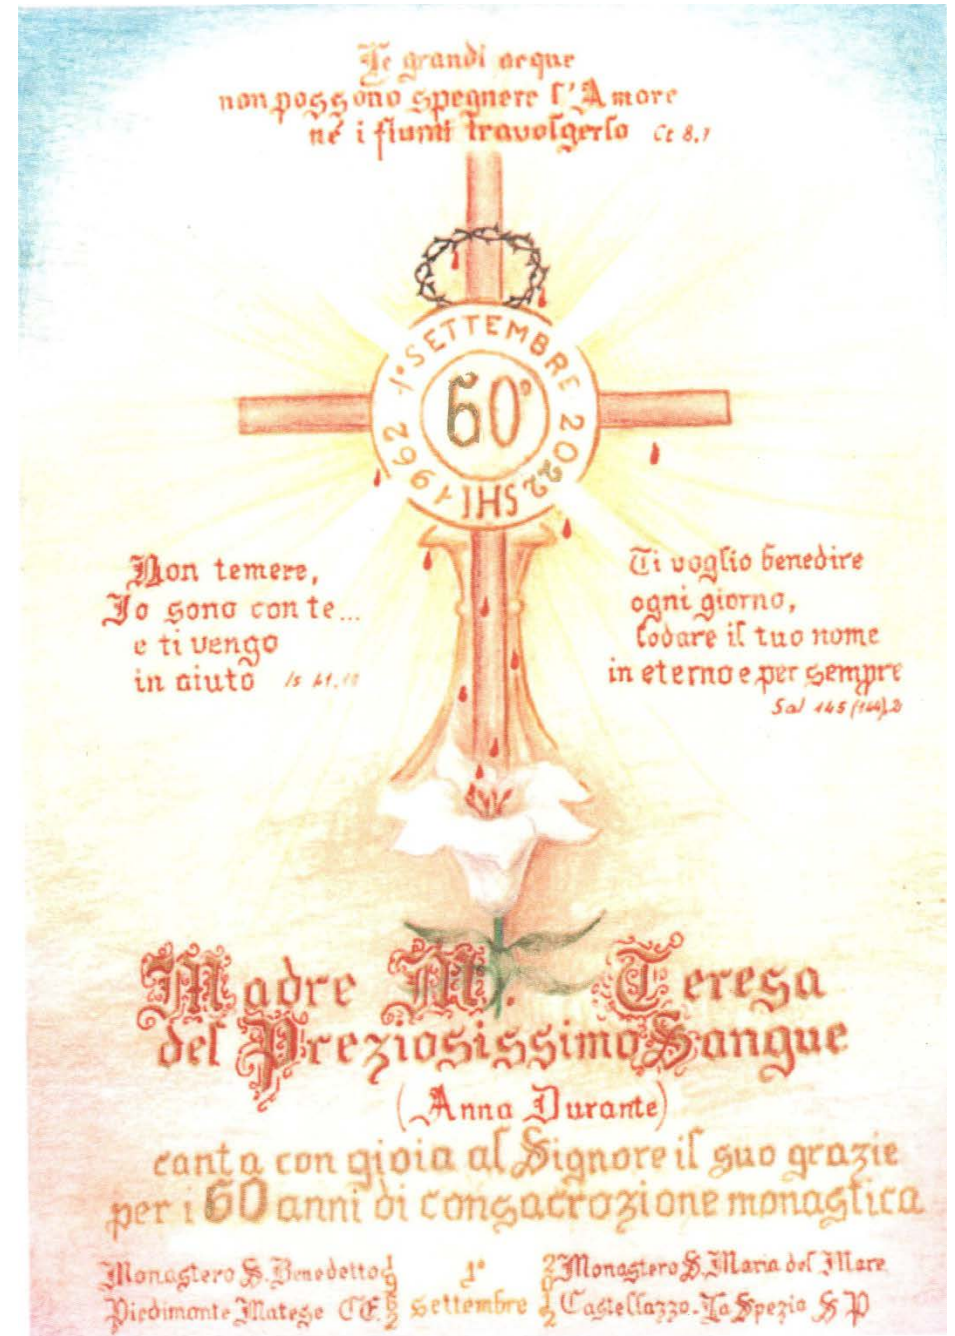 Le grandi acque
non possono spegnere l'Amore
né i fiumi travolgerlo Ct 8,7
1° SETTEMBRE 2022
60°
1962
IHS
Non temere,
Io sono con te...
e ti vengo
in aiuto Is 41,10
Ti voglio benedire
ogni giorno,
lodare il tuo nome
in eterno e per sempre
Sal 145 (144),2
Madre M. Teresa
del Preziosissimo Sangue
(Anna Durante)
canta con gioia al Signore il suo grazie
per i 60 anni di consacrazione monastica
Monastero S. Benedetto 1962 1° 2022 Monastero S. Maria del Mare
Piedimonte Matese CE settembre Castellazzo - La Spezia SP